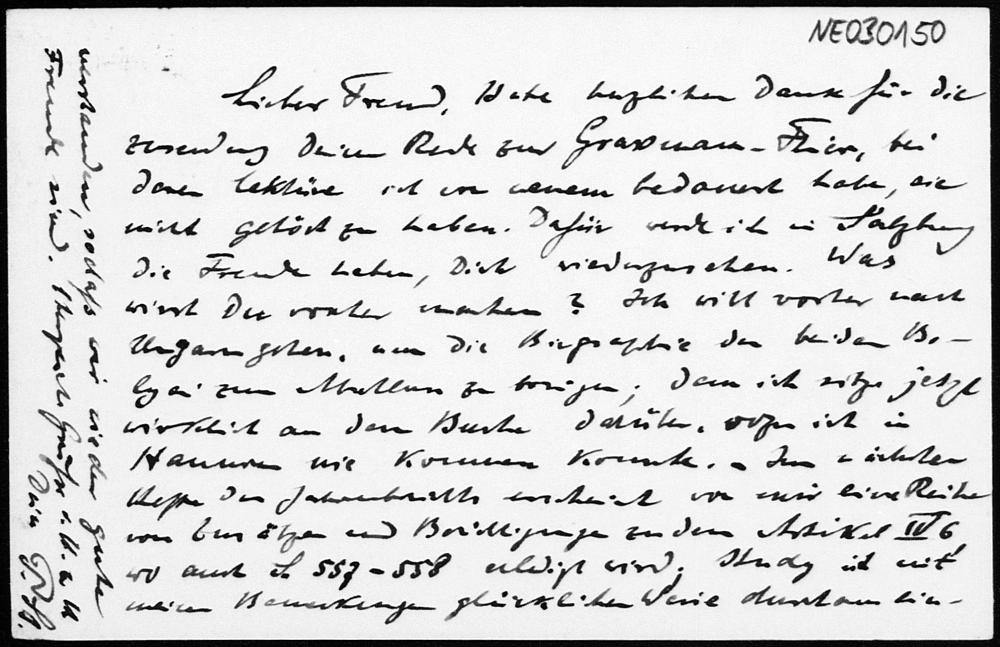 NE030150
Lieber Freund, Habe herzlichen Dank für die
Zusendung Deiner Rede zur Grassmann-Feier, bei
deren Lektüre ich von neuem bedauert habe, sie
nicht gehört zu haben. Dafür werde ich in Salzburg
die Freude haben, Dich wiederzusehen. Was
wirst Du vorher machen? Ich will vorher nach
Ungarn gehen, um die Biographie der beiden Bo-
lyai zum Abschluss zu bringen; denn ich sitze jetzt
wirklich an dem Buche darüber, wozu ich in
Hannover nie kommen konnte. – Im nächsten
Hefte des Jahresberichts erscheint von mir eine Reihe
von Zusätzen und Berichtigungen zu dem Artikel
wo auch S 557–558 erledigt wird; Study ist mit
meinen Bemerkungen glücklicher Weise durchaus ein-
verstanden, sodass wir wieder gute
Freunde sind. Herzliche Grüsse v. H. z. H.
Dein